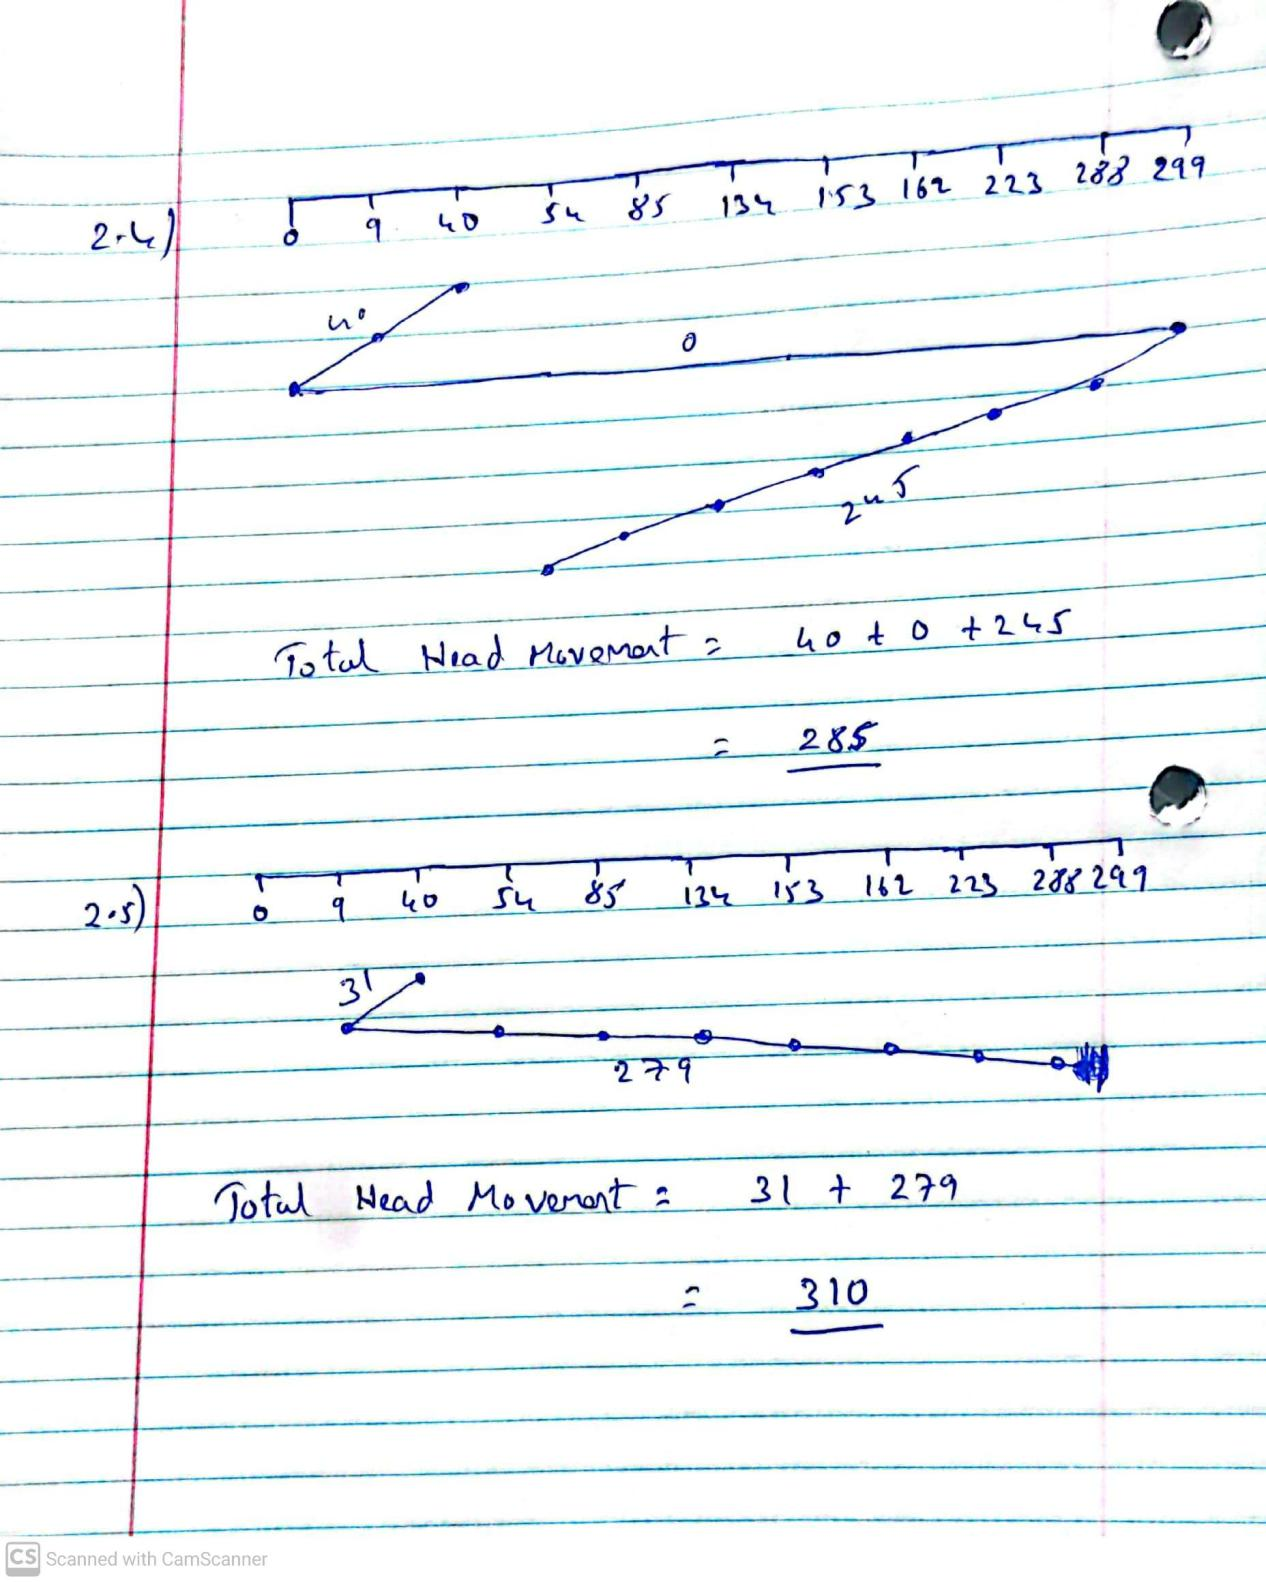 2.4)
0 9 40 54 85 134 153 162 223 288 299
40
0
245
Total Head Movement = 40 + 0 + 245
= 285
2.5)
0 9 40 54 85 134 153 162 223 288 299
31
279
Total Head Movement = 31 + 279
= 310
CS Scanned with CamScanner